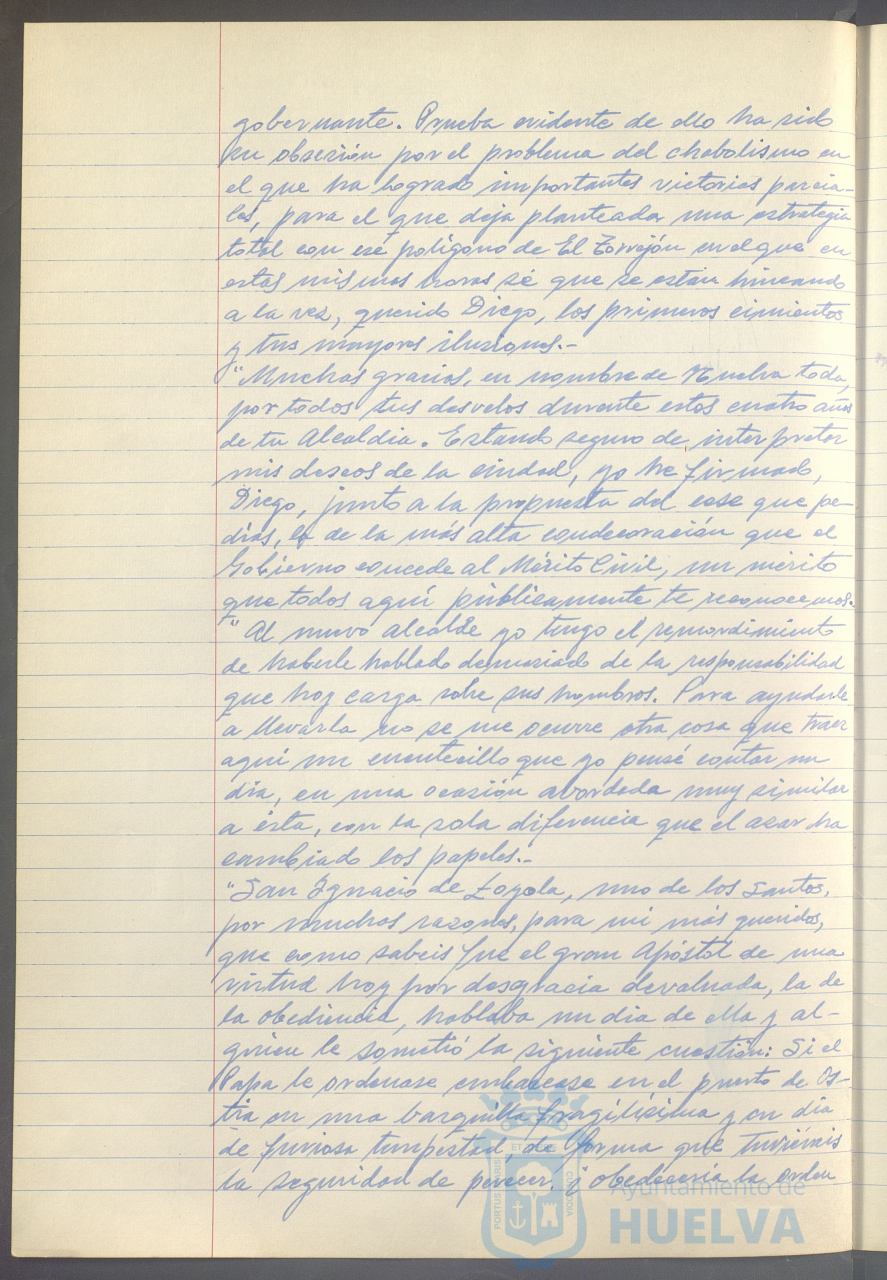 gobernante. Prueba evidente de ello ha sido
su obsesión por el problema del chabolismo en
el que ha logrado importantes victorias parcia-
les, para el que deja planteada una estrategia
total con ese polígono de El Torrejón en el que en
estas mismas horas sé que se están hincando
a la vez, querido Diego, los primeros cimientos
y tus mayores ilusiones.-
"Muchas gracias, en nombre de Huelva toda,
por todos tus desvelos durante estos cuatro años
de tu Alcaldia. Estando seguro de interpretar
mis deseos de la ciudad, yo he firmado,
Diego, junto a la propuesta del cese que pe-
dias, la de la más alta condecoración que el
Gobierno concede al Mérito Civil, un mérito
que todos aquí públicamente te reconocemos.-
"Al nuevo alcalde yo tengo el remordimiento
de haberle hablado demasiado de la responsabilidad
que hoy carga sobre sus hombros. Para ayudarle
a llevarla no se me ocurre otra cosa que traer
aquí un cuentecillo que yo pensé contar un
día, en una ocasión abordada muy similar
a ésta, con la sola diferencia que el azar ha
cambiado los papeles.-
"San Ignacio de Loyola, uno de los Santos,
por muchas razones, para mi más queridos,
que como sabeis fue el gran Apóstol de una
virtud hoy por desgracia devaluada, la de
la obediencia, hablaba un dia de ella y al-
guien le sometió la siguiente cuestión: Si el
Papa le ordenase embarcase en el puerto de Os-
tia en una barquilla fragilísima y en dia
de furiosa tempestad, de forma que tuviérais
la seguridad de perecer. ¿obedecería la orden
PORTUS MARIS ET TERRAE CUSTODIA
Ayuntamiento de
HUELVA